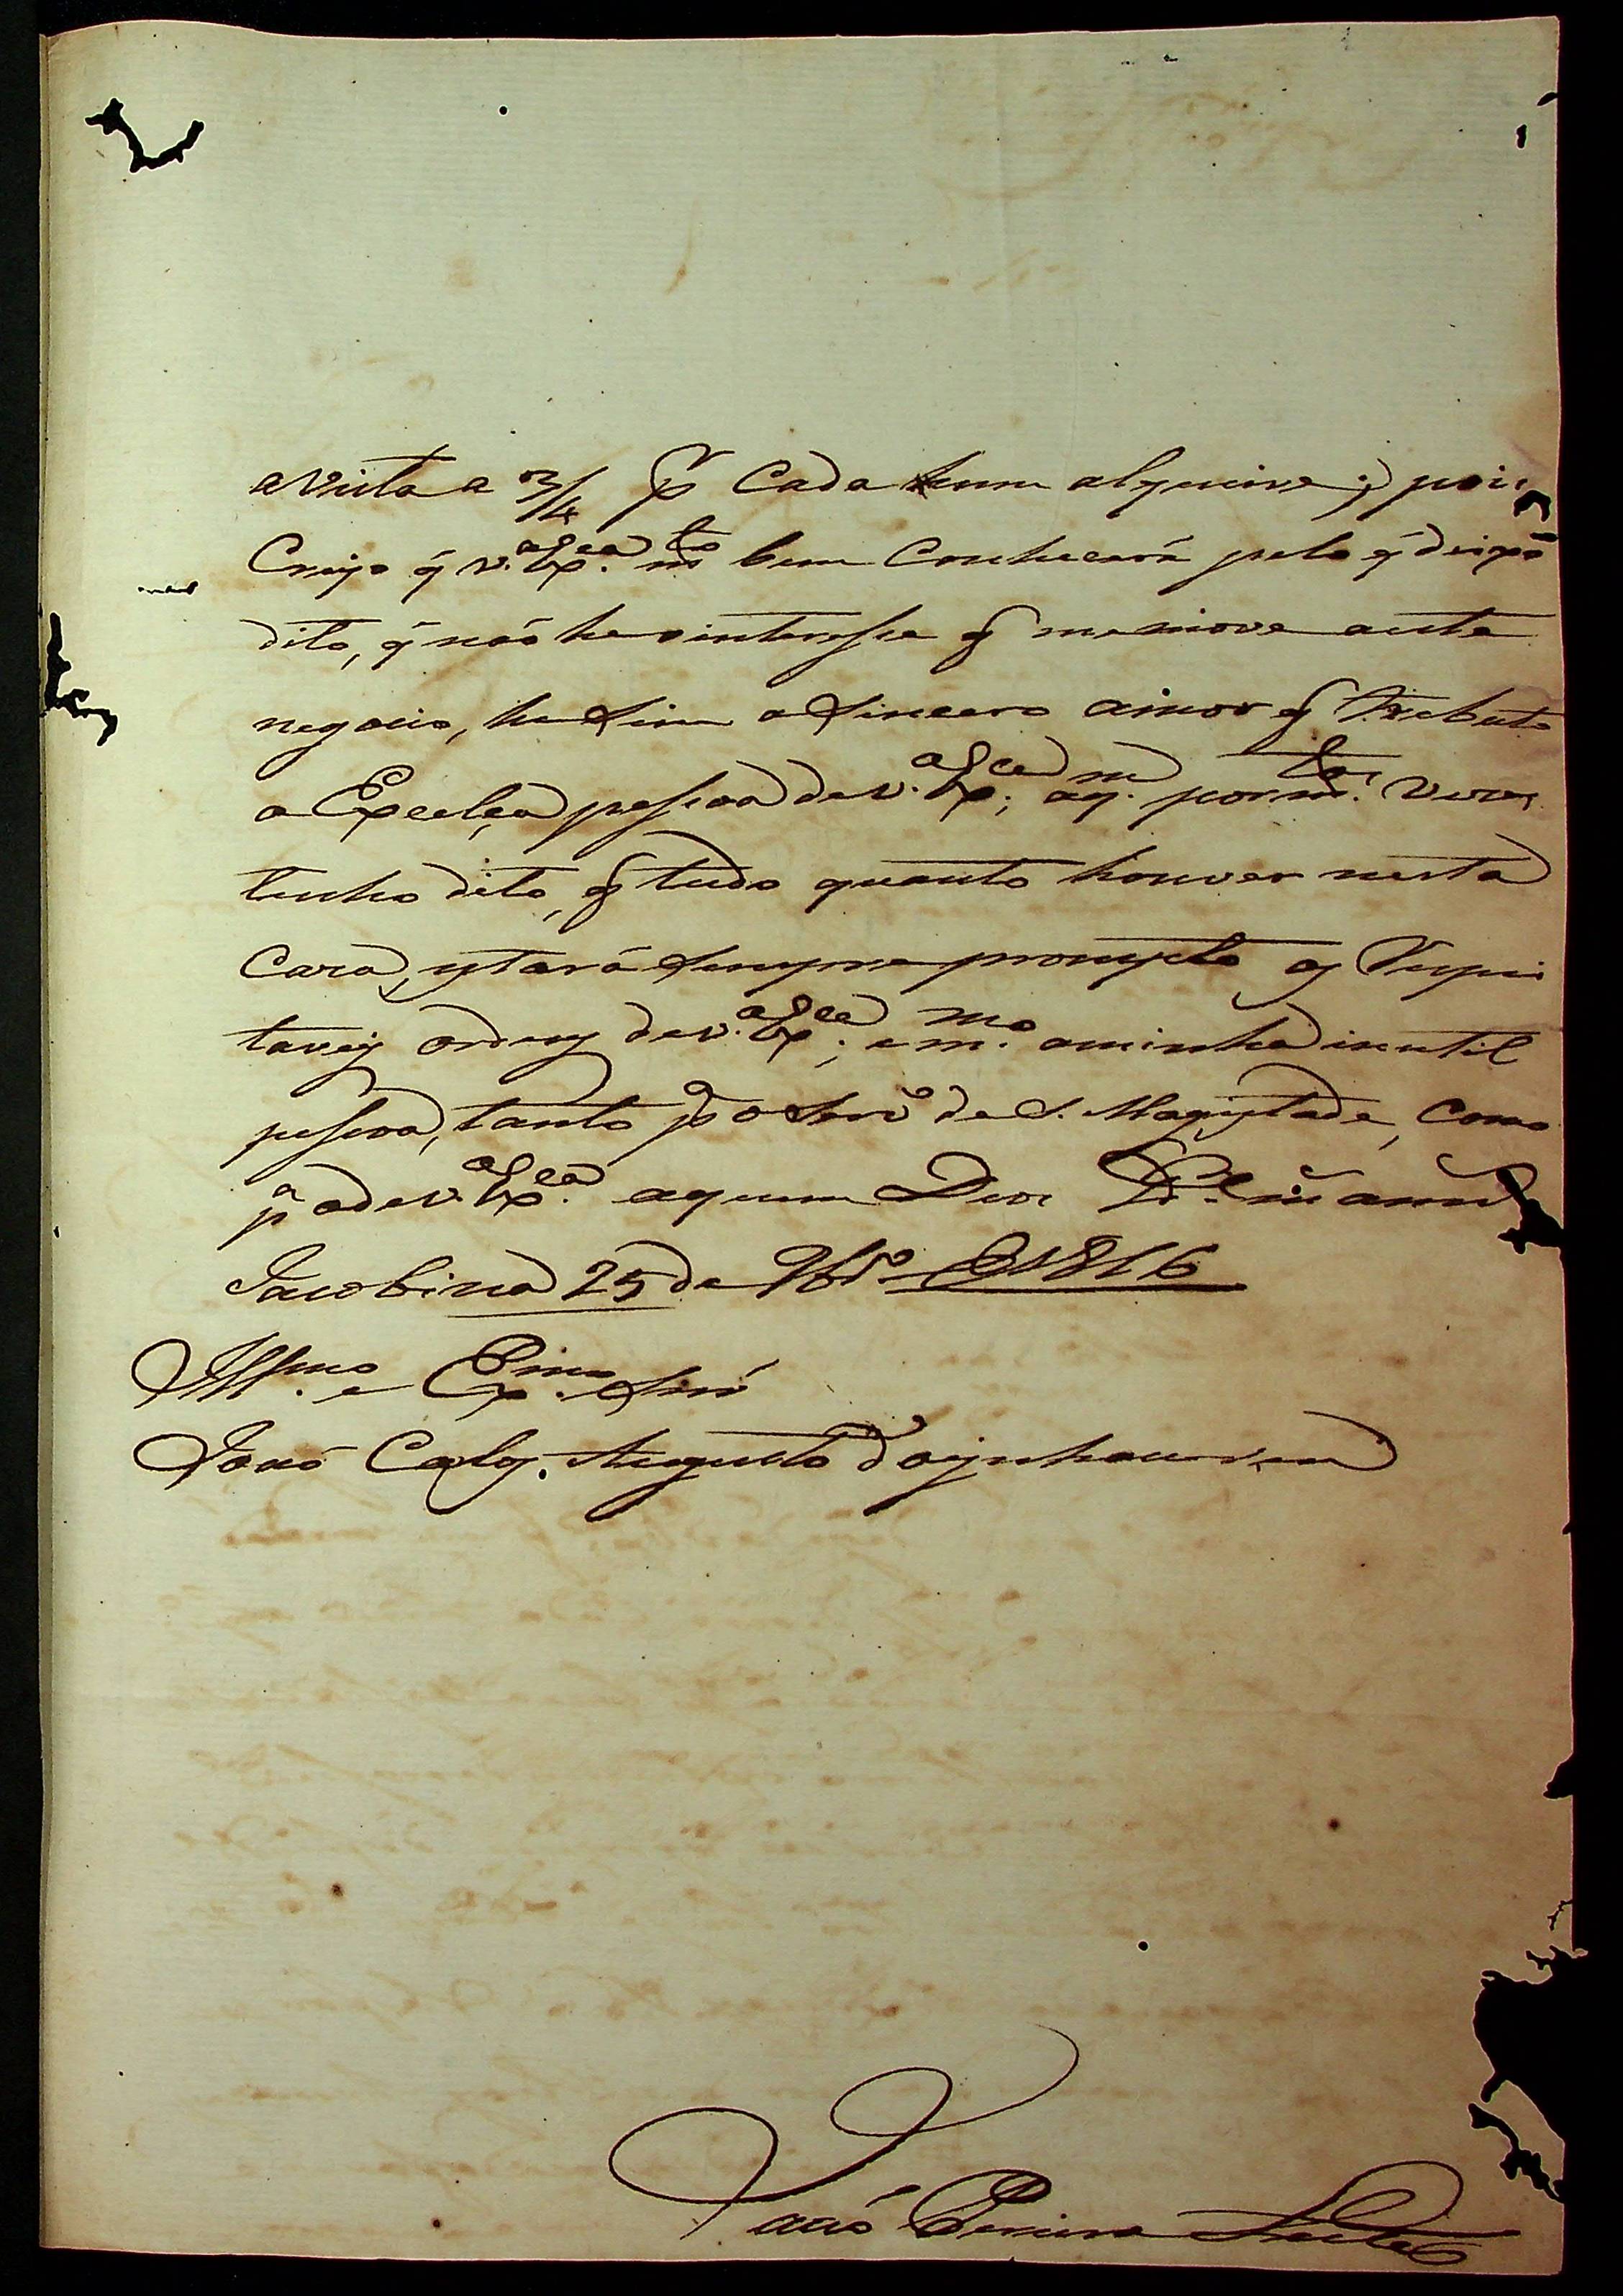 avista a 3/4 pr Cada hum alqueire; pois
Creijo q̃ V. Exª. mto bem Conhecerá pelo q̃ deixo
dito, q̃ naõ he o interesse q̃ me move a este
negocio, he sim o Sincero amor q̃ tributo
a Excelça pessoa de V. Exª.; aqm. por mtas. vezes
tenho dito, q̃ tudo quanto houver nesta
Caza, estará sempre prompto as Respei
taveis ordens de V. Exª.; emmo. aminha inutil
pessoa, tanto pª o Serviº de S. Magestade, Como
pª ade V. Exª. aquem Deos
Jacobina 25 de 9brº de 1816
Illmo. e Exmo. Snr̃
Joaõ Carlos Augusto d'oeynhausen
Joaõ Pereira Leite